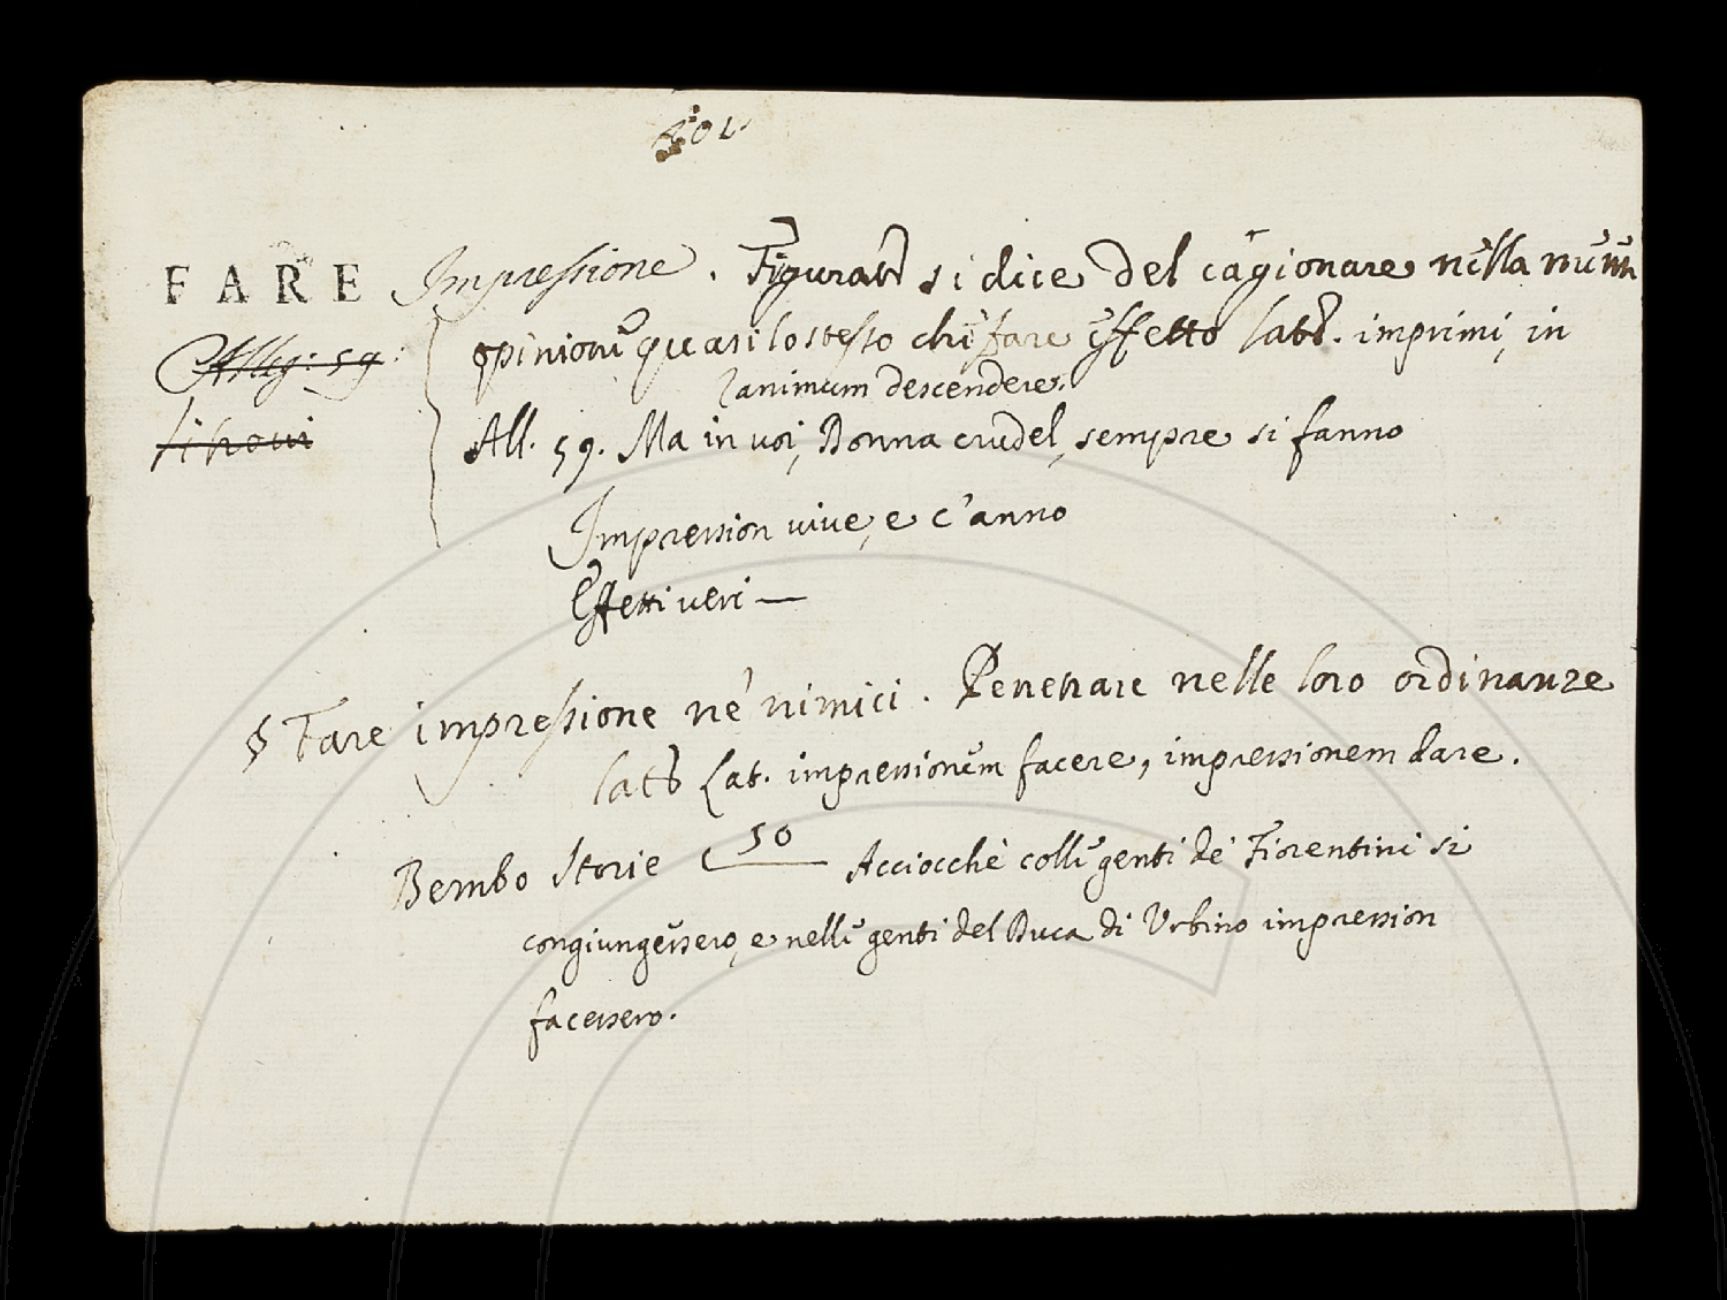 201.
FARE Impressione. Figurat si dice del cagionare nella mente
opinione quasi lo stesso che fare effetto latt. imprimi, in
animum descendere.
Alleg: 59:
si trovi
All. 59. Ma in voi, Donna crudel, sempre si fanno
Impression vive, e c'anno
Effetti veri —
§ Fare impressione ne' nimici. Penetrare nelle loro ordinanze
latt Lat. impressionem facere, impressionem dare.
Bembo Storie 50 Acciocchè colle genti de' Fiorentini si
congiungessero, e nelle genti del Duca di Urbino impression
facessero.